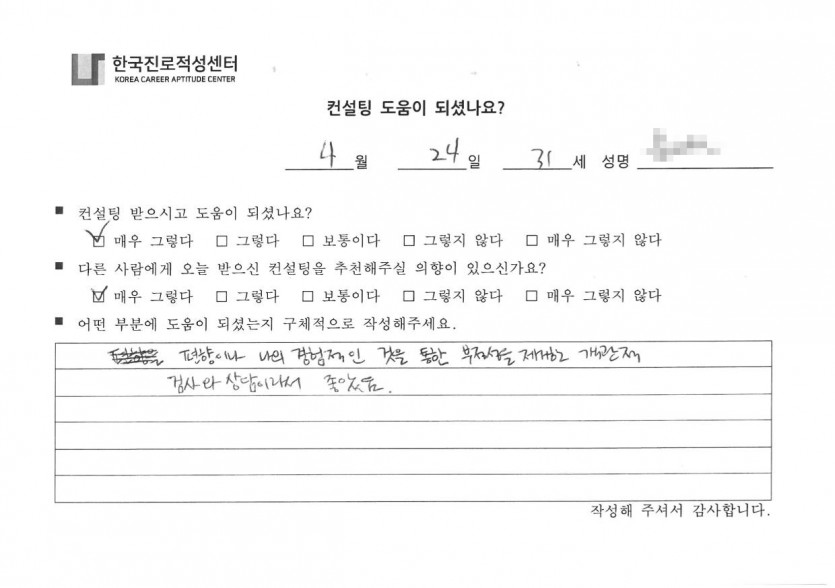 한국진로적성센터
KOREA CAREER APTITUDE CENTER
컨설팅 도움이 되셨나요?
4 월 24 일 31 세 성명
■ 컨설팅 받으시고 도움이 되셨나요?
☑ 매우 그렇다 □ 그렇다 □ 보통이다 □ 그렇지 않다 □ 매우 그렇지 않다
■ 다른 사람에게 오늘 받으신 컨설팅을 추천해주실 의향이 있으신가요?
☑ 매우 그렇다 □ 그렇다 □ 보통이다 □ 그렇지 않다 □ 매우 그렇지 않다
■ 어떤 부분에 도움이 되셨는지 구체적으로 작성해주세요.
편향이나 나의 경험적인 것을 통한 제거한 객관적
검사와 상담이라서 좋았음.
작성해 주셔서 감사합니다.